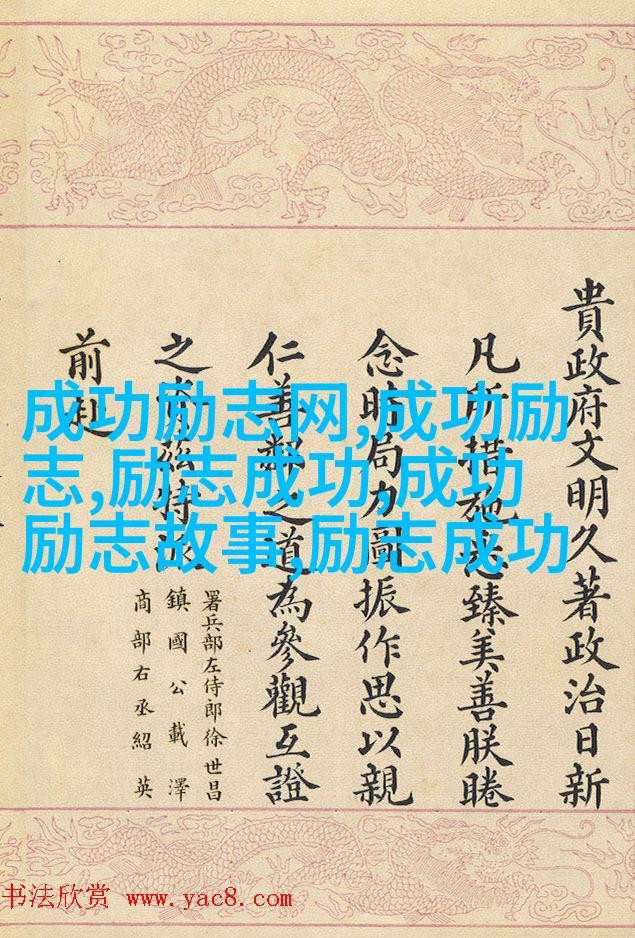 貴政府文明久著政治日新
凡所措施悉臻美善朕睠
念時局力圖振作思以親
仁善鄰之道為參觀互證
之資茲特派
署兵部左侍郎徐世昌
鎮國公載澤
商部右丞紹英
前赴
成功励志网,成功励
志,励志成功,成功
励志故事,励志成功
书法欣赏 www.yac8.com